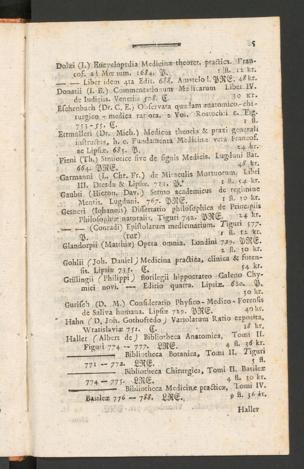 5
Dolæi (I.) Encyclopedia Medicinæ theoret. practica. Fran-
cof. ad Moenum. 1684. P. 1 fl. 12 kr.
— — Liber idem 4ta Edit. 688. Amstelo l. PRE. 48 kr.
Donatii (I. B.) Commentationum Medicarum Liber IV.
de Indiciis. Venetiis 508. C. 30 kr.
Eschenbach (Dr. C. E.) Observata quædam anatomico-chi-
rurgico-medica rariora. 2 Vol. Rostochii c. Fig.
753-55. C. 1 fl.
Ettmülleri (Dr. Mich.) Medicus theoria & praxi generali
instructus, h. e. Fundamenta Medicinæ vera Francof.
ac Lipsiæ. 685. P. 24 kr.
Fieni (Th.) Simiotice sive de signis Medicis. Lugduni Bat.
664. PRE. 48 kr.
Garmanni (L. Chr. Fr.) de Miraculis Mortuorum. Libri
III. Dresdæ & Lipsiæ. 721. B. 1 fl. 12 kr.
Gaubii (Hieron. Dav.) Sermo academicus de regimine
Mentis. Lugduni. 767. PRE. 1 fl. 30 kr.
Gesneri (Iohannis) Dissertatio philosophica de Principiis
Philosophiæ naturalis. Tiguri 742. PRE. 24 kr.
— — (Conradi) Epistolarum medicinarium. Tiguri 577.
P. (rar) 1 fl. 12 kr.
Glandorpii (Matthiæ) Opera omnia. Londini 729. PRE.
2 fl. 30 kr.
Gohlii (Joh. Daniel) Medicina practica, clinica & foren-
sis. Lipsiæ 735. C. 54 kr.
Grüllingii (Philippi) florilegii hippocrateo-Galeno Chy-
mici novi. — Editio quarta. Lipsiæ. 680. P.
30 kr.
Gurisch (D. M.) Consideratio Physico-Medico-Forensis
de Saliva humana. Lipsiæ 729. PRE. 40 kr.
Hahn (D. Joh. Gothofredo) Variolarum Ratio exposita.
Wratislaviæ 751. C. 18 kr.
Haller (Alberti de) Bibliotheca Anatomica, Tomi II.
Figuri 774 — 777. LRE. 4 fl. 36 kr.
——— Bibliotheca Botanica, Tomi II. Tiguri
771 — 772. LRE. 5 fl.
——— Bibliotheca Chirurgica, Tomi II. Basileæ
774 — 775. LRE. 4 fl. 30 kr.
——— Bibliotheca Medicinæ practicæ, Tomi IV.
Basileæ 776 — 788. LRE. 9 fl. 36 kr.
Haller